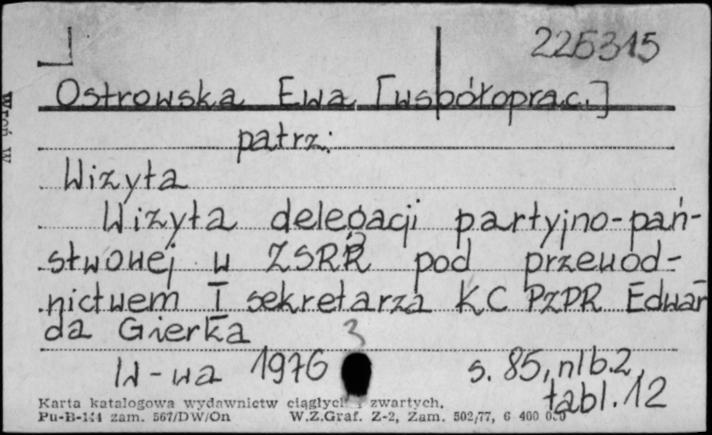 225315
Ostrowska Ewa [współoprac.]
patrz:
Wizyta
Wizyta delegacji partyjno-pań-
stwowej w ZSRR pod przewod-
nictwem I sekretarza KC PZPR Edwar
da Gierka
W-wa 1976 s. 85, nlb. 2,
tabl. 12
Karta katalogowa wydawnictw ciągłych i zwartych.
zam. 567/DW/On W.Z.Graf. Z-2, Zam. 502/77, 6 400 000